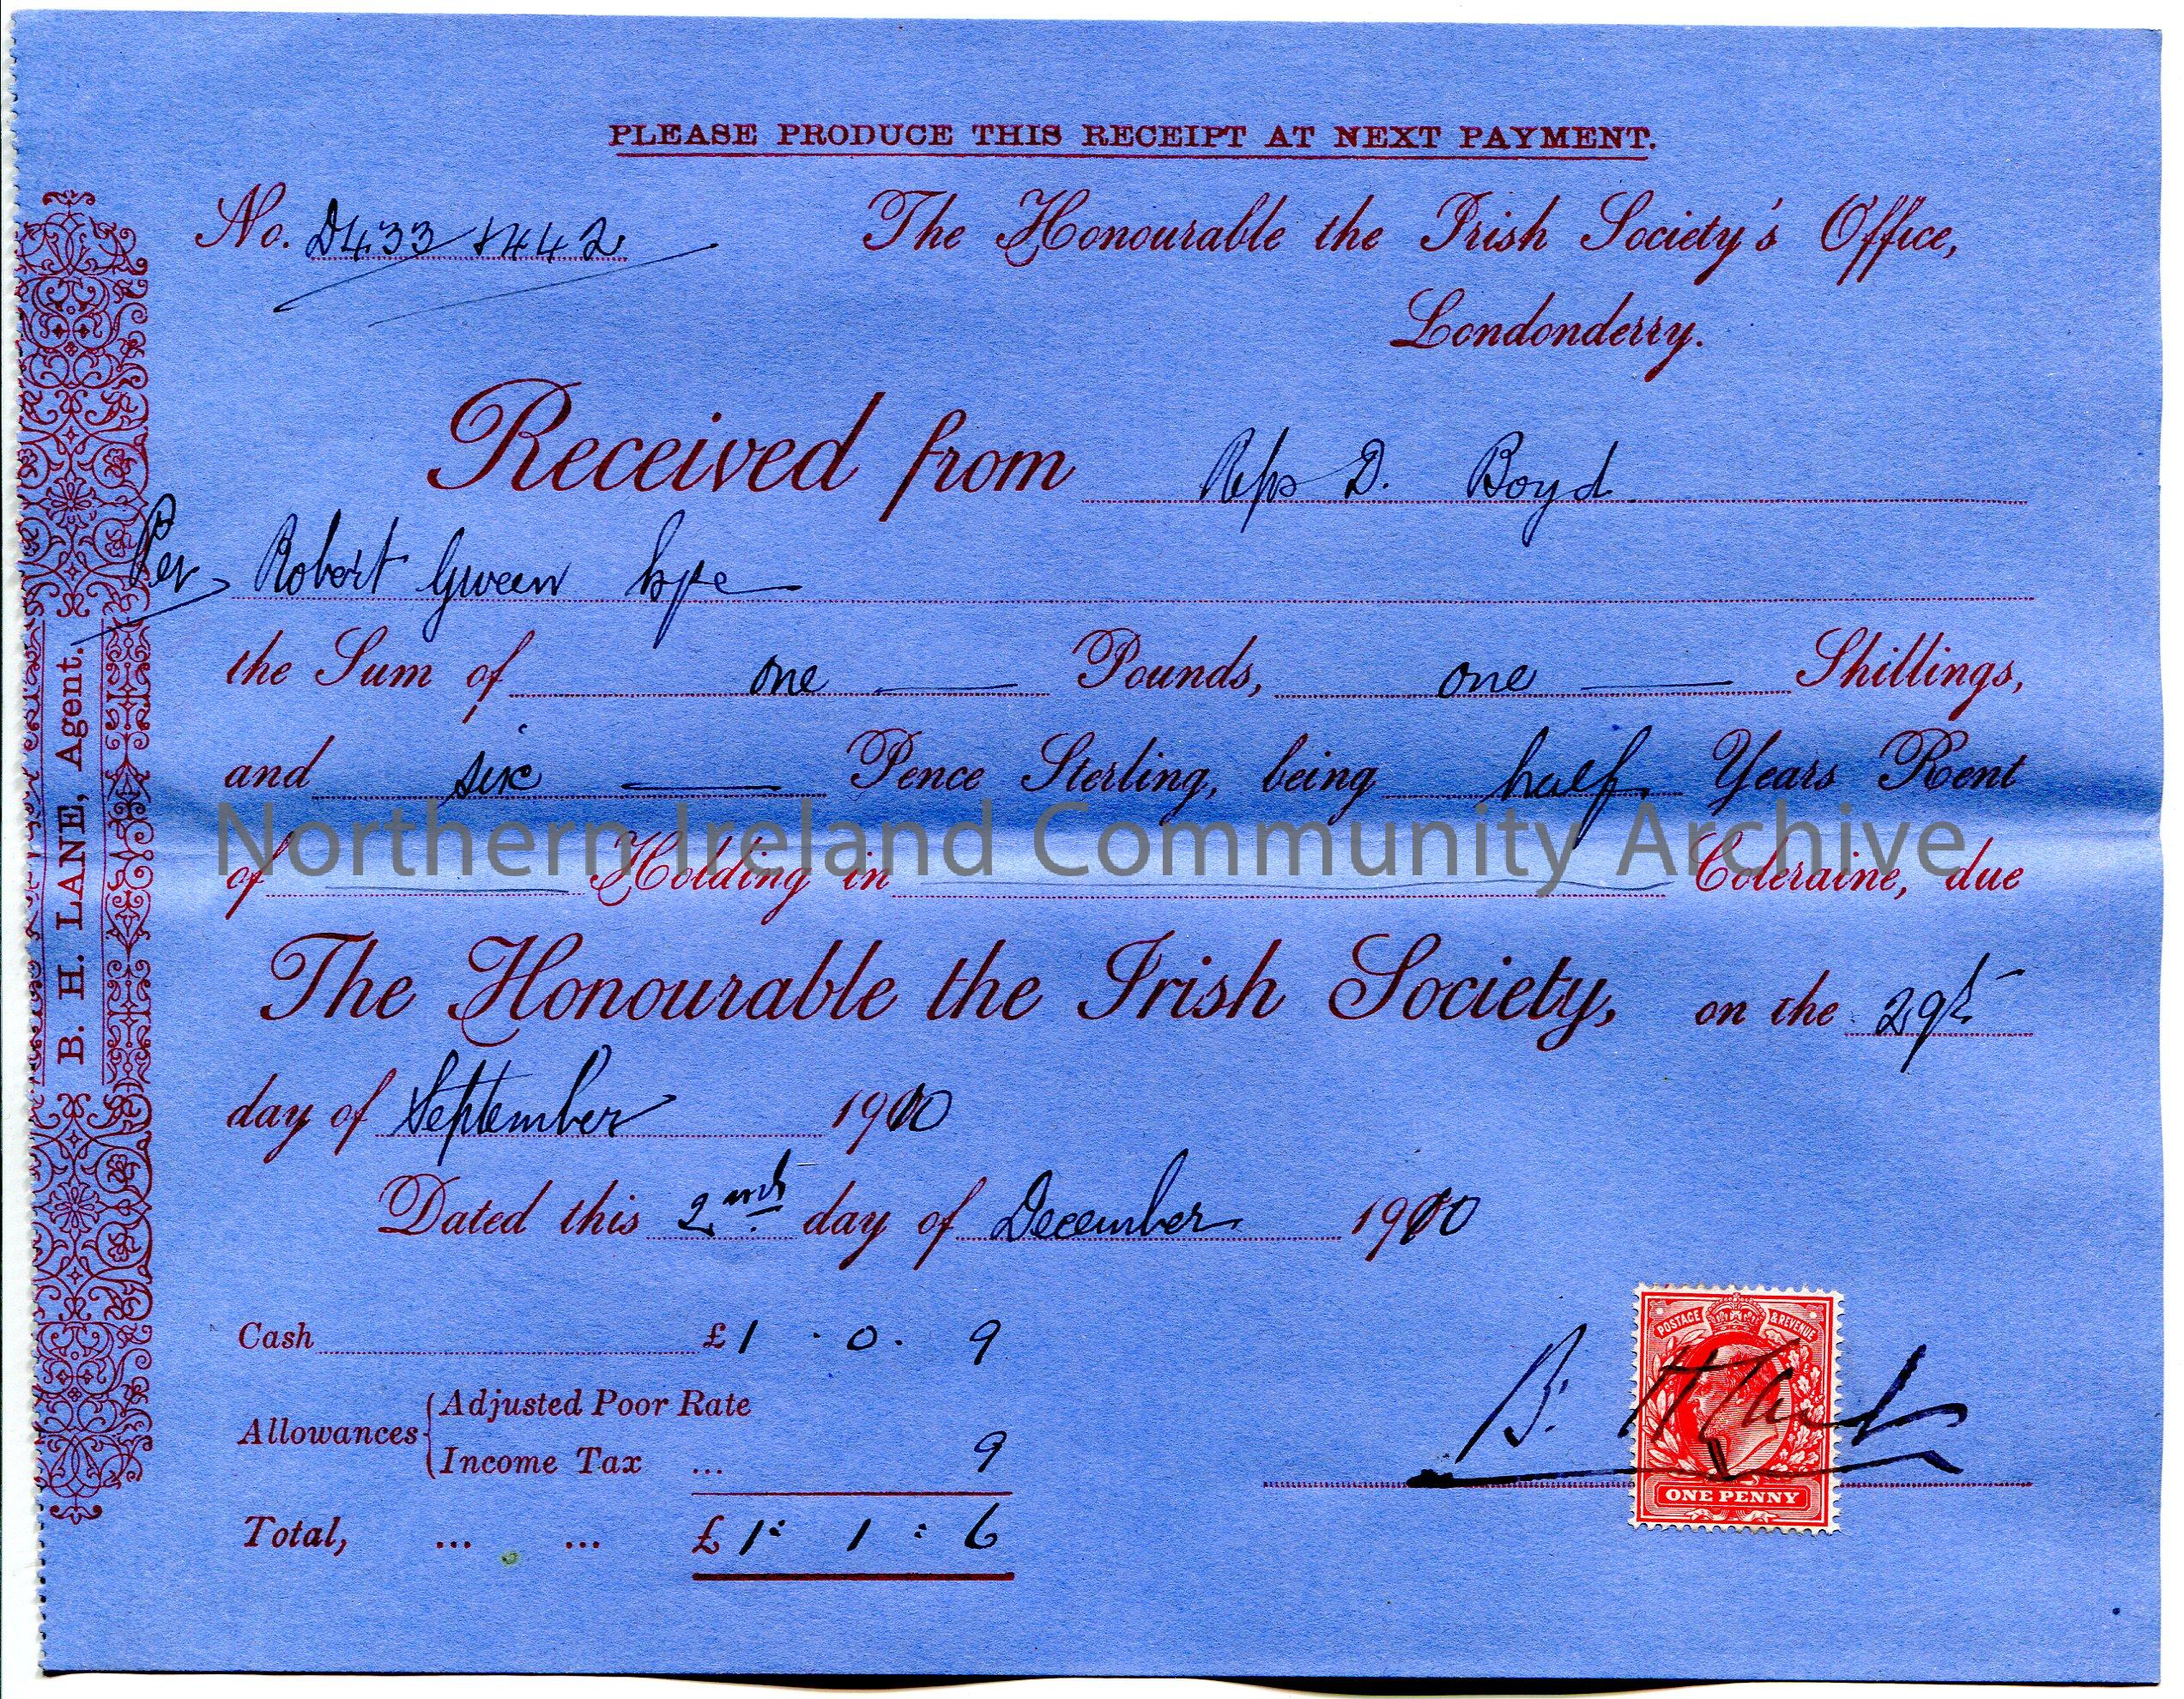 PLEASE PRODUCE THIS RECEIPT AT NEXT PAYMENT.
No. D433 + 442 The Honourable the Irish Society's Office,
Londonderry.
Received from Reps D. Boyd
Per Robert Gween
the Sum of one Pounds, one Shillings,
and six Pence Sterling, being half Years Rent
Northern Ireland Community Archive
of Holding in Coleraine, due
The Honourable the Irish Society, on the 29th
day of September 1910
Dated this 2nd day of December 1910
Cash £1 . 0 . 9
Allowances Adjusted Poor Rate
Income Tax ... 9
Total, ... ... £1 : 1 : 6
B. H. Lane
POSTAGE & REVENUE
ONE PENNY
B. H. LANE, Agent.